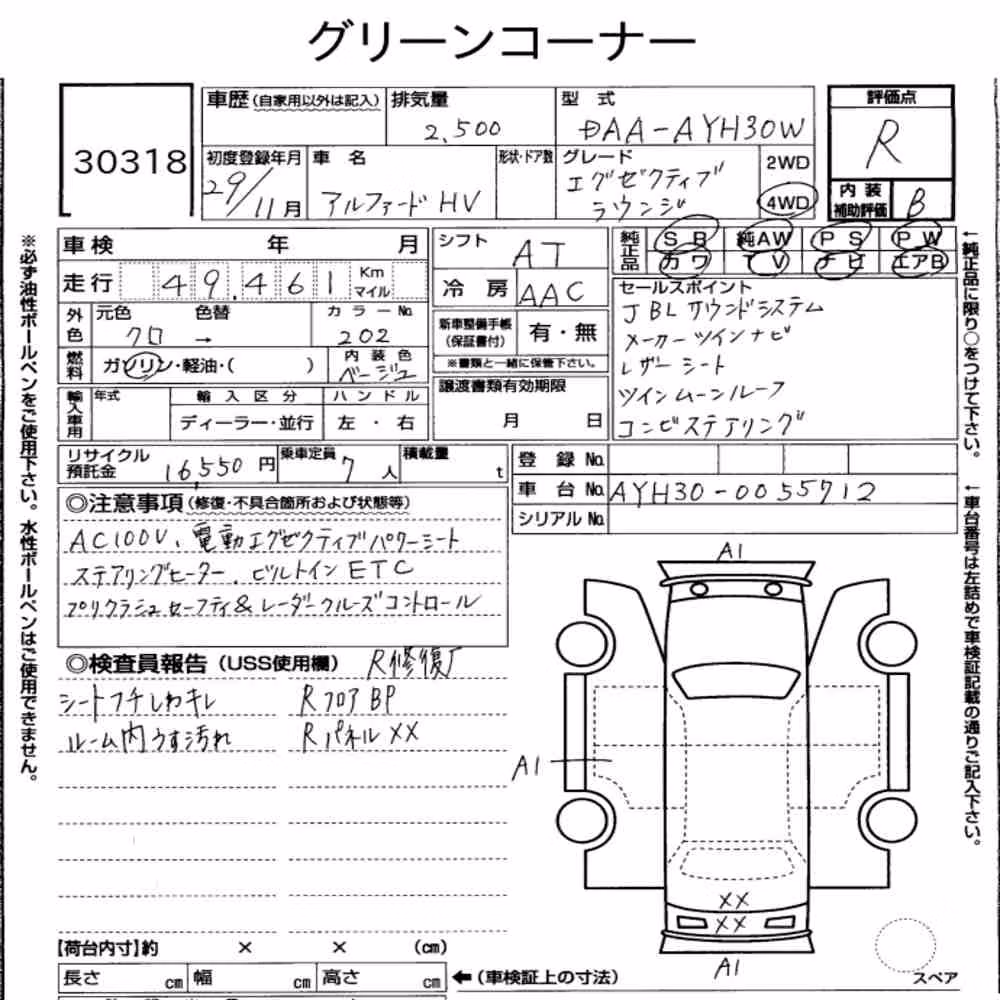 グリーンコーナー
30318
車歴(自家用以外は記入)
排気量
2,500
型 式
DAA-AYH30W
初度登録年月
29/11月
車 名
アルファード HV
形状・ドア数
グレード
エグゼクティブ
ラウンジ
2WD
4WD
評価点
R
内装
補助評価
B
車検 年 月
走行 49,461 Km
マイル
外色
元色
クロ
色替
→
カラーNo.
202
燃料
ガソリン・軽油・( )
内装色
ベージュ
輸入車用
年式
輸入区分
ディーラー・並行
ハンドル
左・右
シフト
AT
冷房
AAC
新車整備手帳
(保証書付)
有・無
※書類と一緒に保管下さい。
譲渡書類有効期限
月 日
純正品
SR 純AW PS PW
カワ TV ナビ エアB
セールスポイント
JBL サウンドシステム
メーカーツインナビ
レザーシート
ツインムーンルーフ
コンビステアリング
リサイクル
預託金
16,550円
乗車定員
7人
積載量
t
登録No.
車台No. AYH30-0055712
シリアルNo.
◎注意事項(修復・不具合箇所および状態等)
AC100V、電動エグゼクティブパワーシート
ステアリングヒーター、ビルトインETC
プリクラシュセーフティ&レーダークルーズコントロール
◎検査員報告(USS使用欄)
R修復歴
シートフチしわキレ
ルーム内うす汚れ
RフロアBP
Rパネル××
A1
A1
××
××
A1
スペア
【荷台内寸】約 × × (cm)
長さ cm 幅 cm 高さ cm
←(車検証上の寸法)
※必ず油性ボールペンをご使用下さい。水性ボールペンはご使用できません。
←純正品に限り○をつけて下さい。
←車台番号は左詰めで車検証記載の通りご記入下さい。